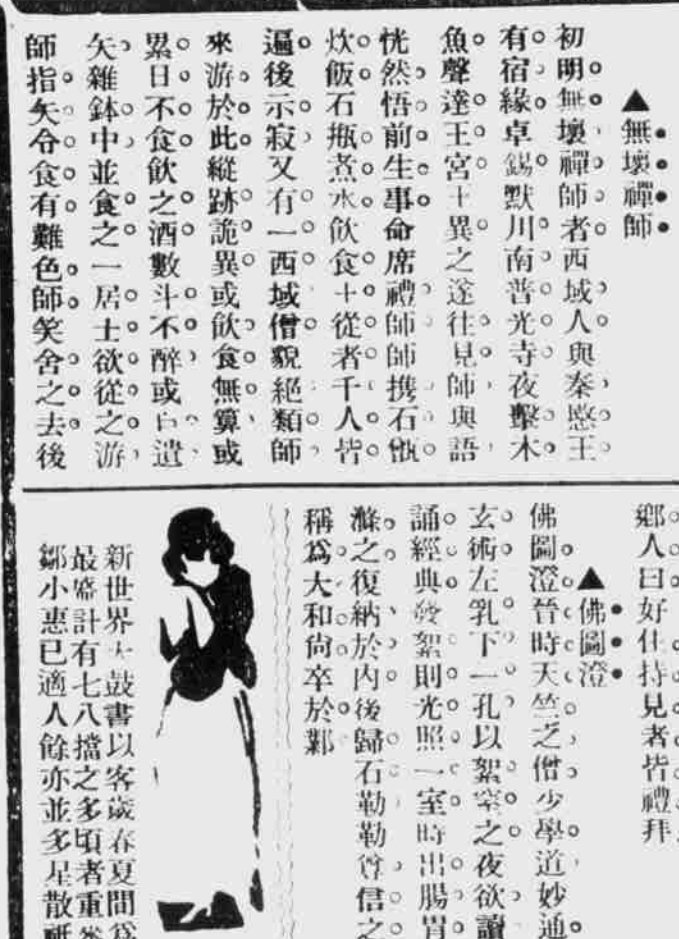 ▲無壞禪師
初明無壞禪師者西域人與秦愍王
有宿緣卓錫默川南普光寺夜擊木
魚聲達王宮王異之遂往見師與語
恍然悟前生事命席禮師師携石甑
炊飯石瓶煮水飲食王從者千人皆
遍後示寂又有一西域僧貌絕類師
來游於此縱跡詭異或飲食無算或
累日不食飲之酒數斗不醉或自遺
矢雜鉢中並食之一居士欲從之游
師指矢令食有難色師笑舍之去後
鄉人曰好住持見者皆禮拜
▲佛圖澄
佛圖澄晉時天竺之僧少學道妙通
玄術左乳下一孔以絮窒之夜欲讀
誦經典發絮則光照一室時出腸胃
滌之復納於內後歸石勒勒尊信之
稱爲大和尙卒於鄴
新世界大鼓書以客歲春夏間爲
最盛計有七八擋之多頃者重
鄒小惠已適人餘亦並多星散